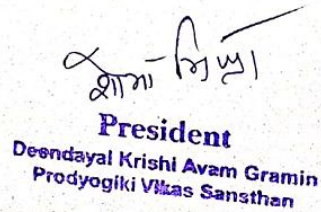 शोभा मिश्रा
President
Deendayal Krishi Avam Gramin
Prodyogiki Vikas Sansthan